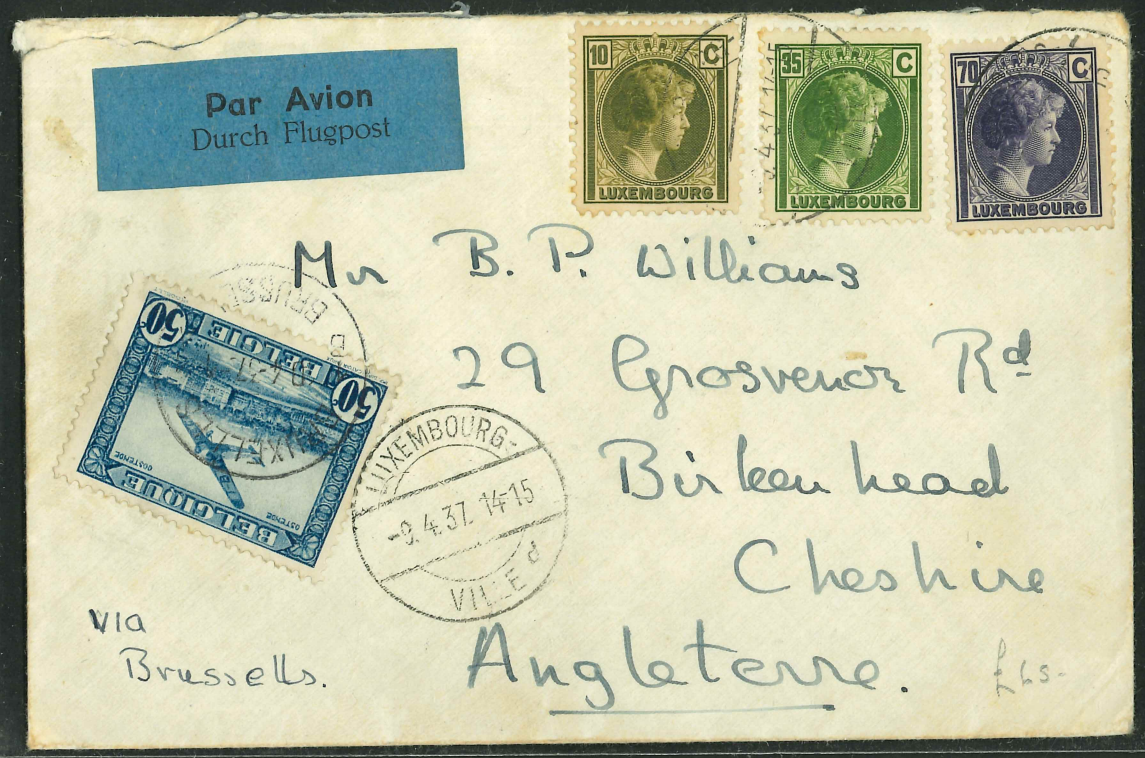 Par Avion
Durch Flugpost
10 C
LUXEMBOURG
35 C
LUXEMBOURG
70 C
LUXEMBOURG
9.4.37 14-15
Mr B. P. Williams
29 Grosvenor Rd
Birkenhead
Cheshire
Angleterre.
50c
50c
BELGIE
BELGIQUE
OOSTENDE
OSTENDE
LUXEMBOURG-
-9.4.37. 14-15
VILLE d
via
Brussells.